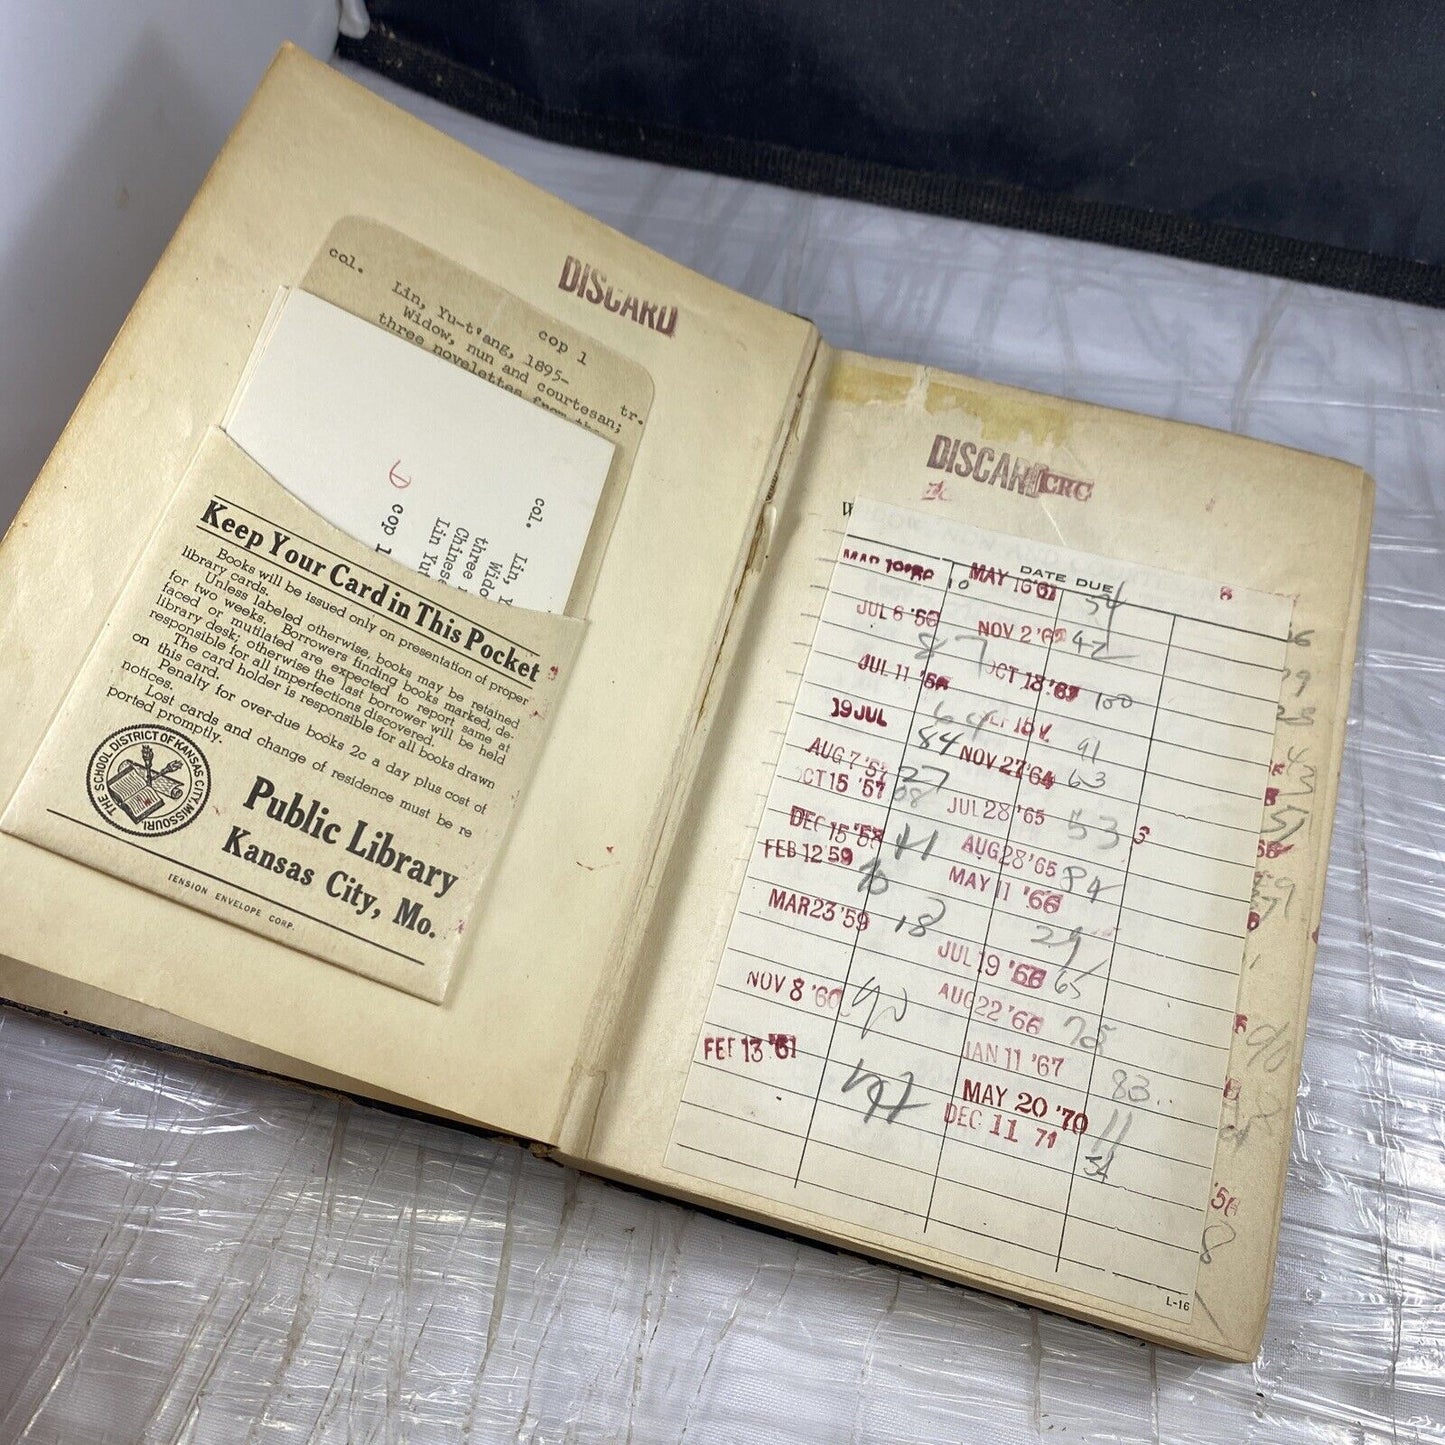 DISCARD
col.
cop 1
Lin, Yu-t'ang, 1895- tr.
Widow, nun and courtesan;
three novelettes from the
cop 1
col.
Lin, Y
Wido
three
Chinese
Lin Yut
Keep Your Card in This Pocket
Books will be issued only on presentation of proper
library cards.
Unless labeled otherwise, books may be retained
for two weeks. Borrowers finding books marked, de-
faced or mutilated are expected to report same at
library desk; otherwise the last borrower will be held
responsible for all imperfections discovered.
The card holder is responsible for all books drawn
on this card.
Penalty for over-due books 2c a day plus cost of
notices.
Lost cards and change of residence must be re
ported promptly.
THE SCHOOL DISTRICT OF KANSAS CITY, MISSOURI
Public Library
Kansas City, Mo.
TENSION ENVELOPE CORP.
DISCARD
CRC
DATE DUE
JUL 6 '56
JUL 11 '56
19 JUL
84
AUG 7 '57
27
OCT 15 '57
68
DEC 15 '58
FEB 12 59
MAR 23 '59
18
NOV 8 '60
90
FEB 13 '61
MAY 16 '61
54
NOV 2 '62
42
OCT 18 '63
100
91
NOV 27 '64
63
JUL 28 '65
53
AUG 28 '65
84
MAY 11 '66
29
JUL 19 '66
65
AUG 22 '66
75
JAN 11 '67
83
MAY 20 '70
11
DEC 11 71
54
'56
8
L-16